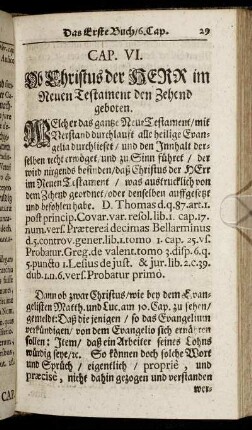 Das Erste Buch/6. Cap. 29
CAP. VI.
Ob Christus der HERR im
Neuen Testament den Zehend
geboten.
WElcher das gantze Neue Testament/mit
Verstand durchlaufft alle heilige Evan-
gelia durchlieset/ und den Innhalt der-
selben recht erwöget, und zu Sinn führet/ der
wird nirgends befinden/daß Christus der HErr
im Neuen Testament / was austrücklich von
dem Zehend geordnet/oder denselben auffgesetzt
und befohlen habe. D. Thomas d.q.87.art.1.
post princip. Covar. var. resol. lib. 1. cap. 17.
num. vers. Præterea decimas Bellarminus
d.5.controv. gener. lib. 1. tomo 1. cap. 25. vs.
Probatur. Greg. de valent. tomo 3. disp. 6. q.
5. puncto 1. Lesius de just. & jur. lib. 2. c. 39.
dub. 1. n. 6. vers. Probatur primo.
Dann ob zwar Christus/wie bey dem Evan-
gelisten Matth. und Luc. am 10. Cap. zu sehen/
gemeldet: Daß die jenigen / so das Evangelium
verkündigen/ von dem Evangelio sich ernähren
sollen: Item/ daß ein Arbeiter seines Lohns
würdig seye/rc. So können doch solche Wort
und Spruch / eigentlich / propriè, und
præcisè, nicht dahin gezogen und verstanden
wer-